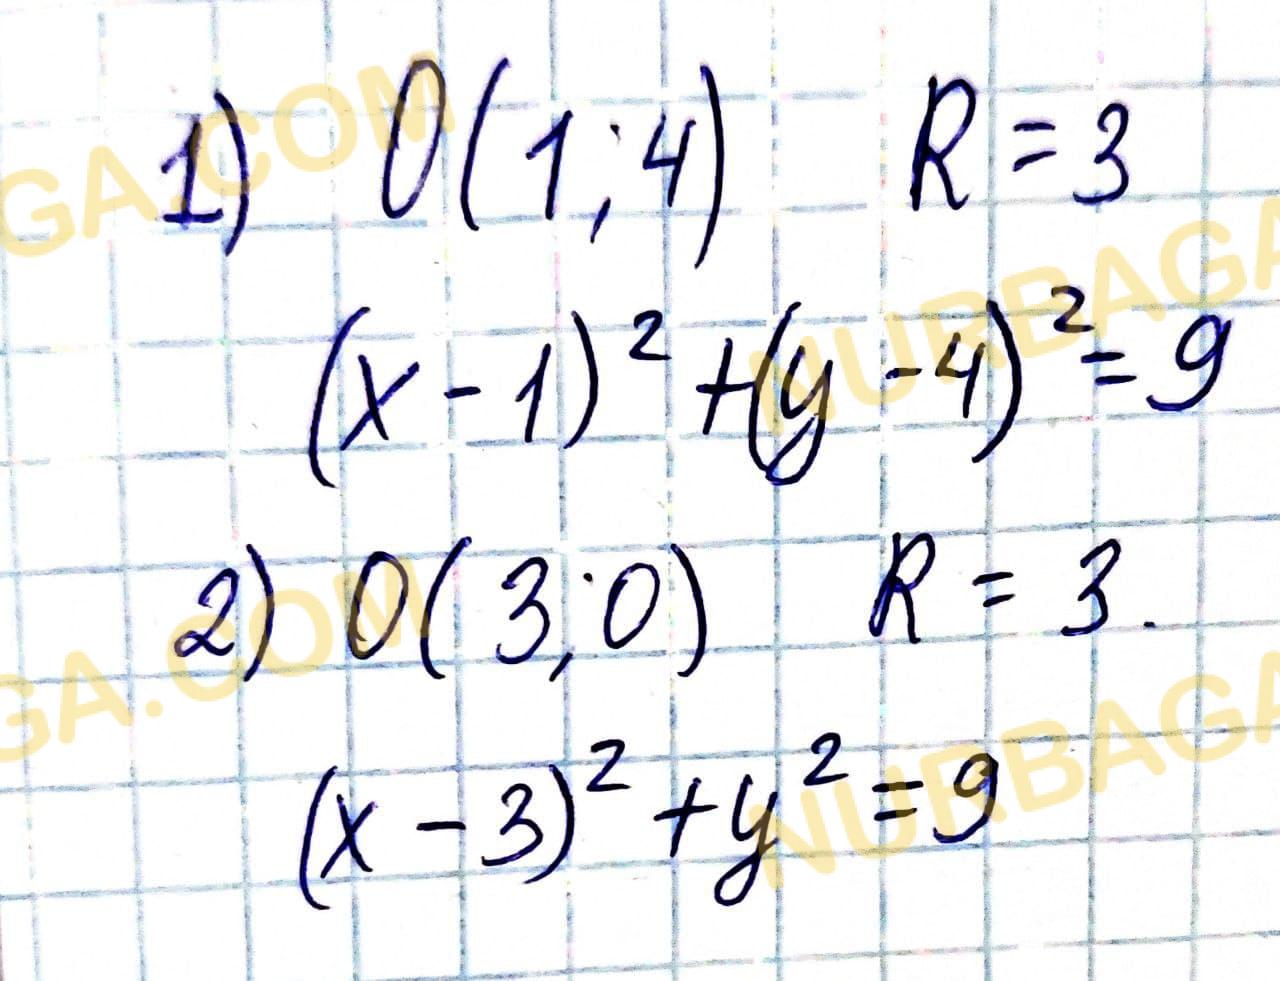 1) O(1;4) R = 3
(x - 1)² + (y - 4)² = 9
2) O(3;0) R = 3.
(x - 3)² + y² = 9
GA.COM
NURBAGA
GA.COM
NURBAGA